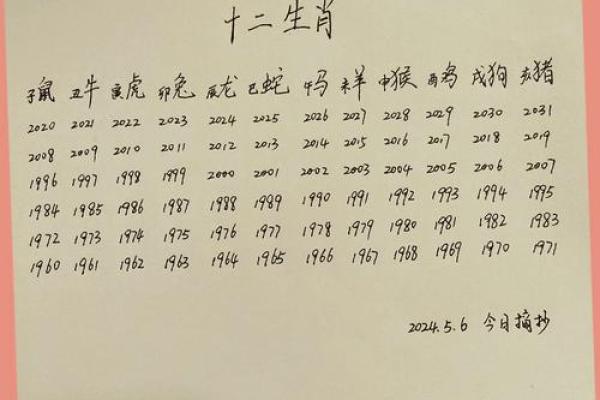 十二生肖
子鼠 丑牛 寅虎 卯兔 辰龙 巳蛇 午马 未羊 申猴 酉鸡 戌狗 亥猪
2020 2021 2022 2023 2024 2025 2026 2027 2028 2029 2030 2031
2008 2009 2010 2011 2012 2013 2014 2015 2016 2017 2018 2019
1996 1997 1998 1999 2000 2001 2002 2003 2004 2005 2006 2007
1984 1985 1986 1987 1988 1989 1990 1991 1992 1993 1994 1995
1972 1973 1974 1975 1976 1977 1978 1979 1980 1981 1982 1983
1960 1961 1962 1963 1964 1965 1966 1967 1968 1969 1970 1971
2024.5.6 今日摘抄